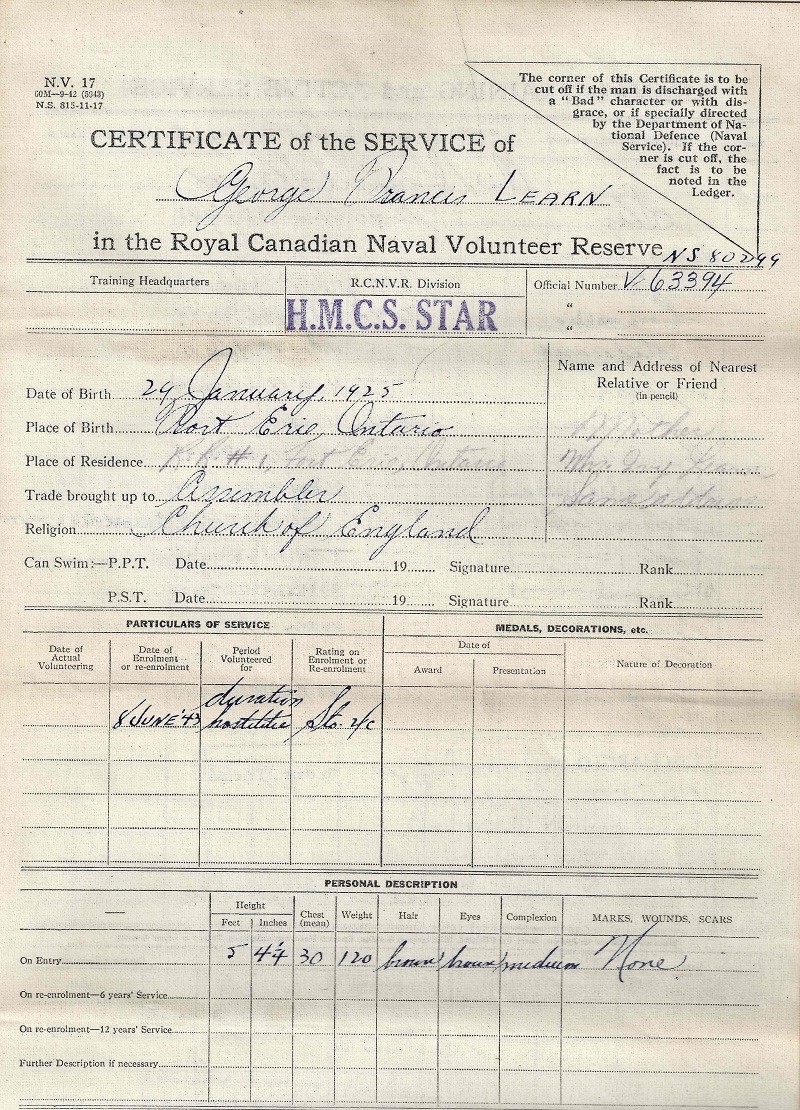 N.V. 17
60M—9-42 (5943)
N.S. 815-11-17
The corner of this Certificate is to be
cut off if the man is discharged with
a "Bad" character or with dis-
grace, or if specially directed
by the Department of Na-
tional Defence (Naval
Service). If the cor-
ner is cut off, the
fact is to be
noted in the
Ledger.
CERTIFICATE of the SERVICE of
George Francis LEARN
in the Royal Canadian Naval Volunteer Reserve NS 80299
Training Headquarters R.C.N.V.R. Division Official Number V 63394
H.M.C.S. STAR "
"
Name and Address of Nearest
Relative or Friend
(in pencil)
Date of Birth 29 January, 1925
Place of Birth Fort Erie, Ontario
Place of Residence R.R. # 1, Fort Erie, Ontario
Trade brought up to Assembler
Religion Church of England
Can Swim:—P.P.T. Date 19 Signature Rank
P.S.T. Date 19 Signature Rank
PARTICULARS OF SERVICE MEDALS, DECORATIONS, etc.
Date of Actual Volunteering Date of Enrolment or re-enrolment Period Volunteered for Rating on Enrolment or Re-enrolment Date of Award Presentation Nature of Decoration
8 JUNE '43 duration hostilitie Sto. 2/c
PERSONAL DESCRIPTION
— Height Feet Inches Chest (mean) Weight Hair Eyes Complexion MARKS, WOUNDS, SCARS
On Entry 5 4¼ 30 120 brown brown medium None
On re-enrolment—6 years' Service
On re-enrolment—12 years' Service
Further Description if necessary